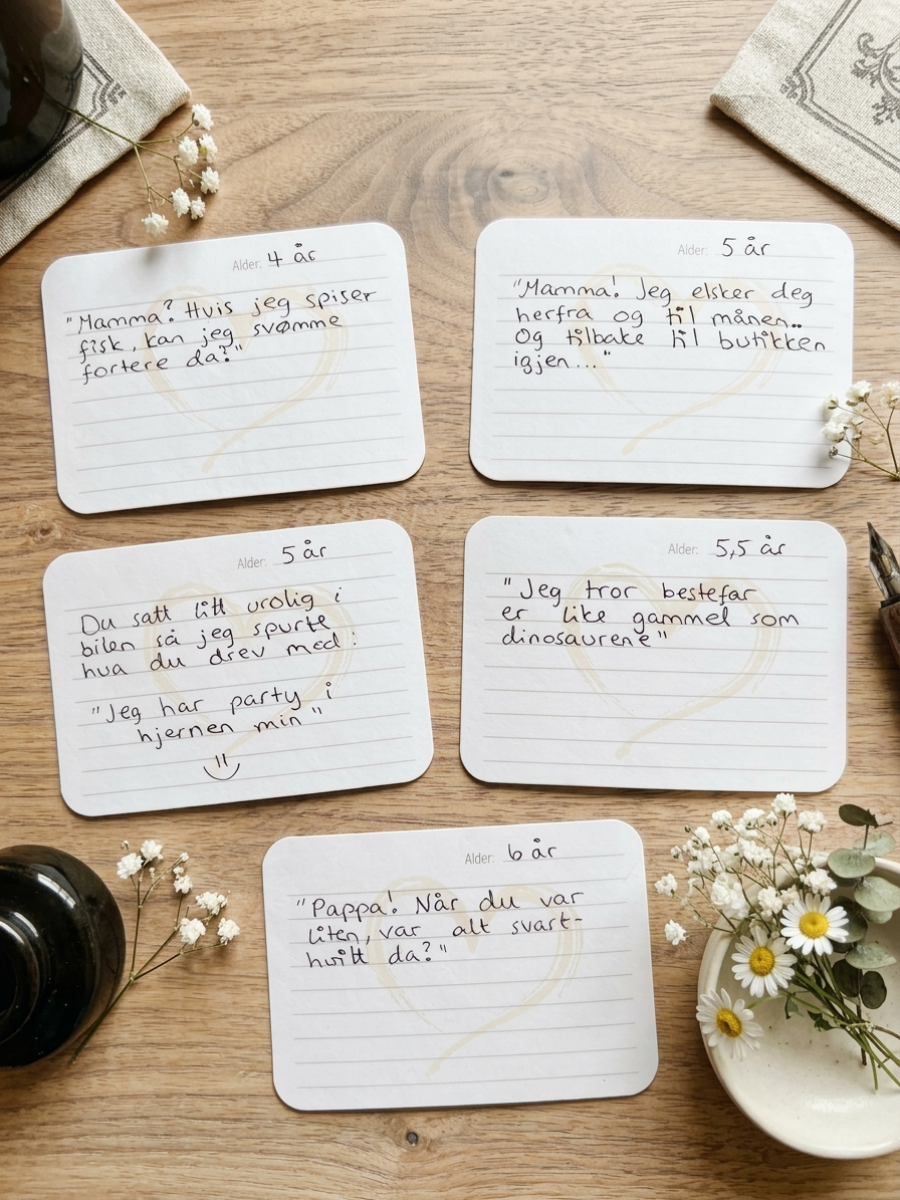 Alder: 4 år
"Mamma? Hvis jeg spiser
fisk, kan jeg svømme
fortere da?"
Alder: 5 år
"Mamma! Jeg elsker deg
herfra og til månen..
Og tilbake til butikken
igjen..."
Alder: 5 år
Du satt litt urolig i
bilen så jeg spurte
hva du drev med:
"Jeg har party i
hjernen min"
Alder: 5,5 år
"Jeg tror bestefar
er like gammel som
dinosaurene"
Alder: 6 år
"Pappa! Når du var
liten, var alt svart-
hvitt da?"